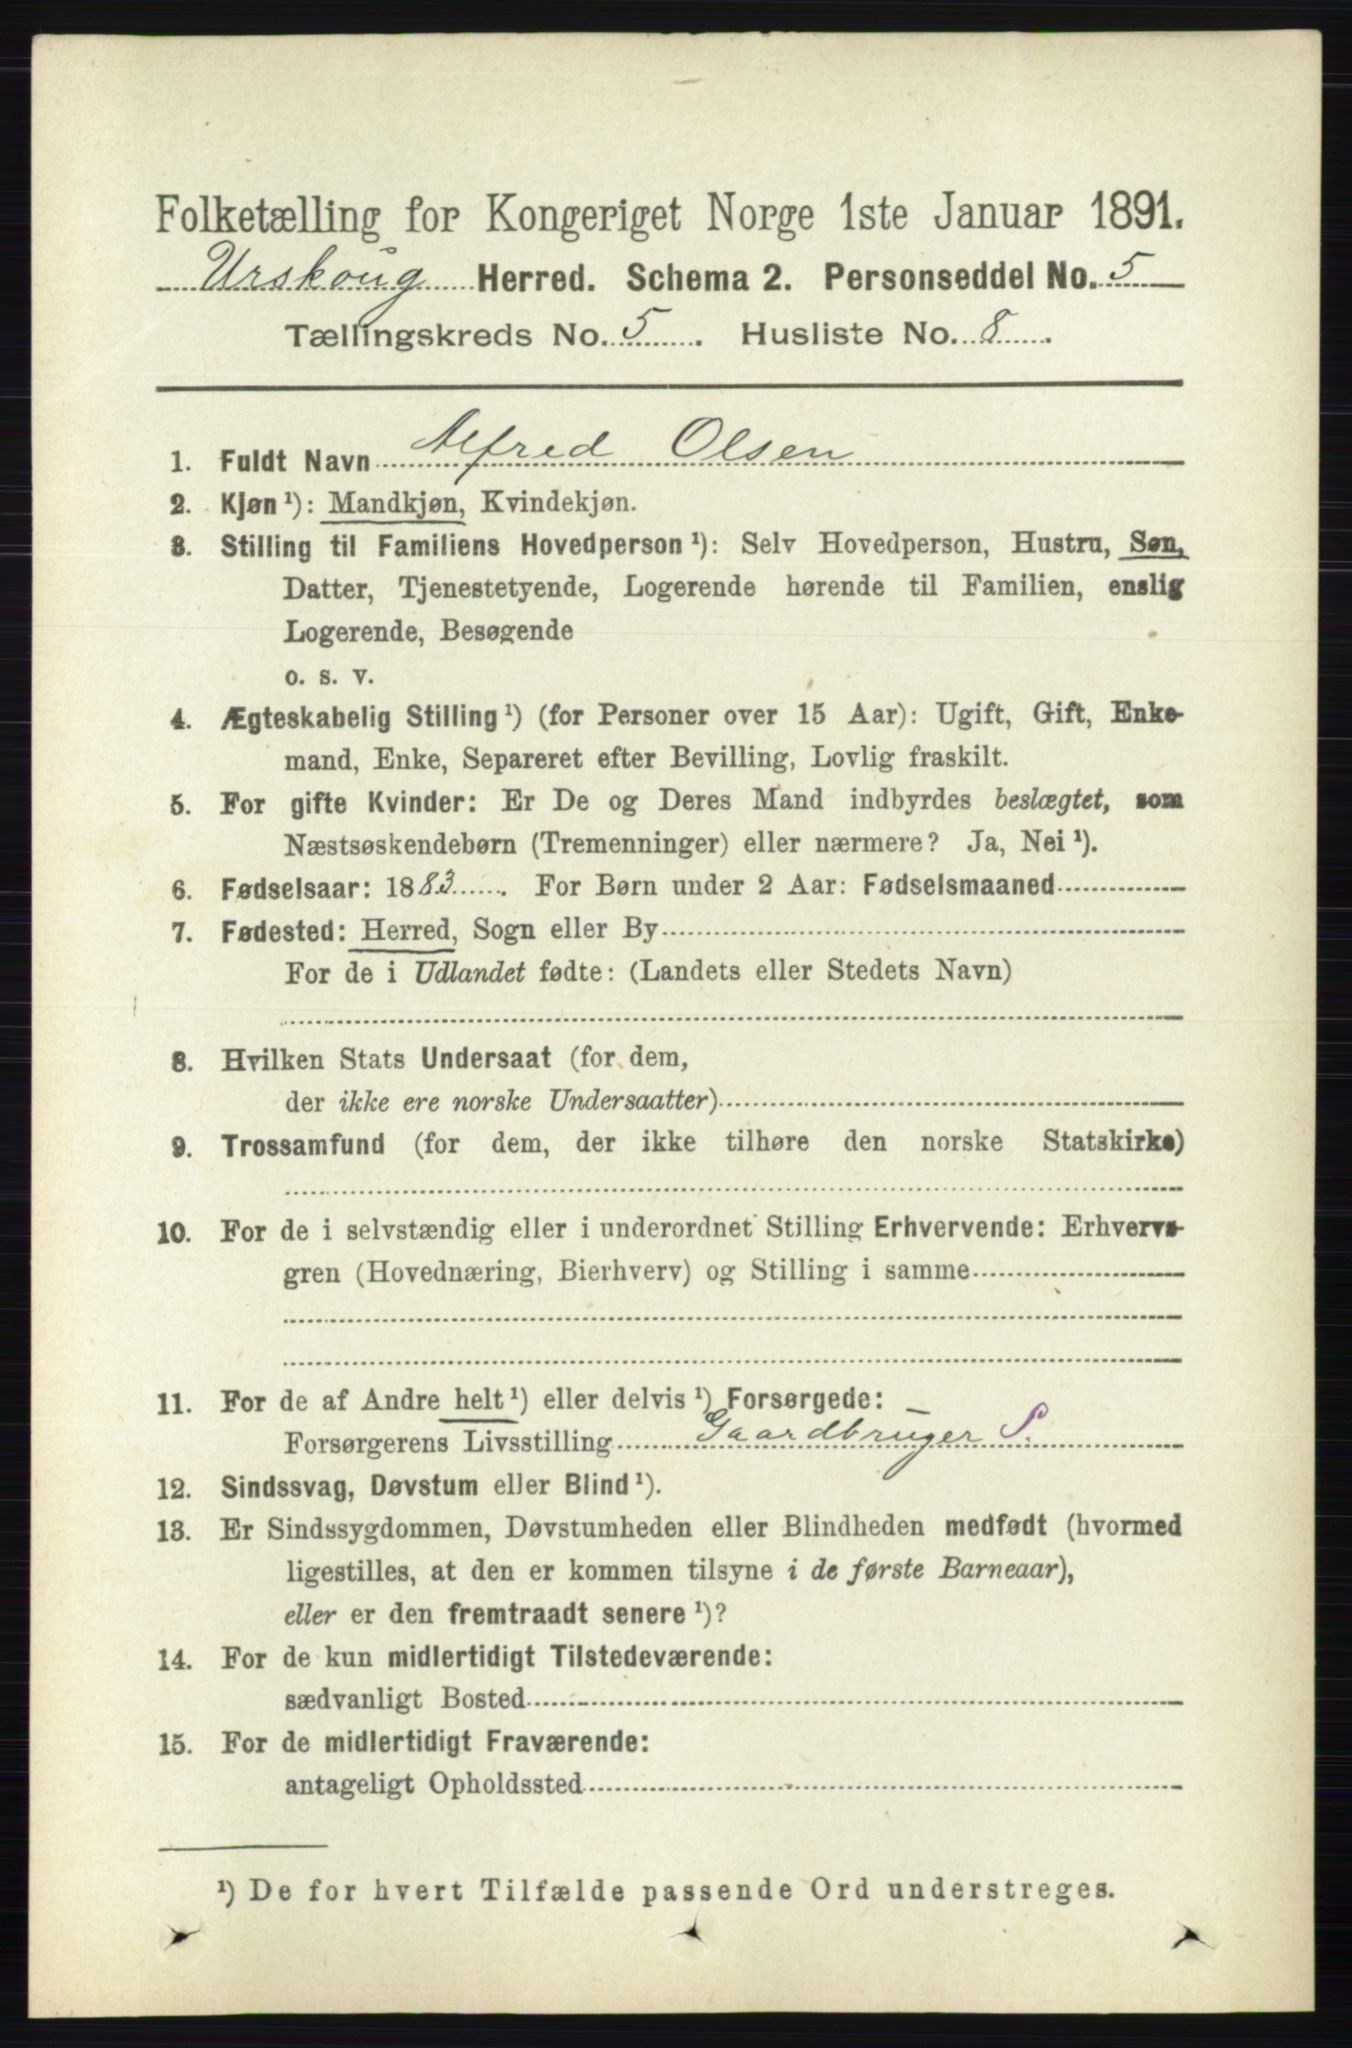 Folketælling for Kongeriget Norge 1ste Januar 1891.
Urskoug Herred. Schema 2. Personseddel No. 5
Tællingskreds No. 5. Husliste No. 8.
1. Fuldt Navn Alfred Olsen
2. Kjøn ¹): Mandkjøn, Kvindekjøn.
3. Stilling til Familiens Hovedperson ¹): Selv Hovedperson, Hustru, Søn,
Datter, Tjenestetyende, Logerende hørende til Familien, enslig
Logerende, Besøgende
o. s. v.
4. Ægteskabelig Stilling ¹) (for Personer over 15 Aar): Ugift, Gift, Enke-
mand, Enke, Separeret efter Bevilling, Lovlig fraskilt.
5. For gifte Kvinder: Er De og Deres Mand indbyrdes beslægtet, som
Næstsøskendebørn (Tremenninger) eller nærmere? Ja, Nei ¹).
6. Fødselsaar: 1883. For Børn under 2 Aar: Fødselsmaaned
7. Fødested: Herred, Sogn eller By
For de i Udlandet fødte: (Landets eller Stedets Navn)
8. Hvilken Stats Undersaat (for dem,
der ikke ere norske Undersaatter)
9. Trossamfund (for dem, der ikke tilhøre den norske Statskirke)
10. For de i selvstændig eller i underordnet Stilling Erhvervende: Erhvervs-
gren (Hovednæring, Bierhverv) og Stilling i samme
11. For de af Andre helt ¹) eller delvis ¹) Forsørgede:
Forsørgerens Livsstilling Gaardbruger S.
12. Sindssvag, Døvstum eller Blind ¹).
13. Er Sindssygdommen, Døvstumheden eller Blindheden medfødt (hvormed
ligestilles, at den er kommen tilsyne i de første Barneaar),
eller er den fremtraadt senere ¹)?
14. For de kun midlertidigt Tilstedeværende:
sædvanligt Bosted
15. For de midlertidigt Fraværende:
antageligt Opholdssted
¹) De for hvert Tilfælde passende Ord understreges.